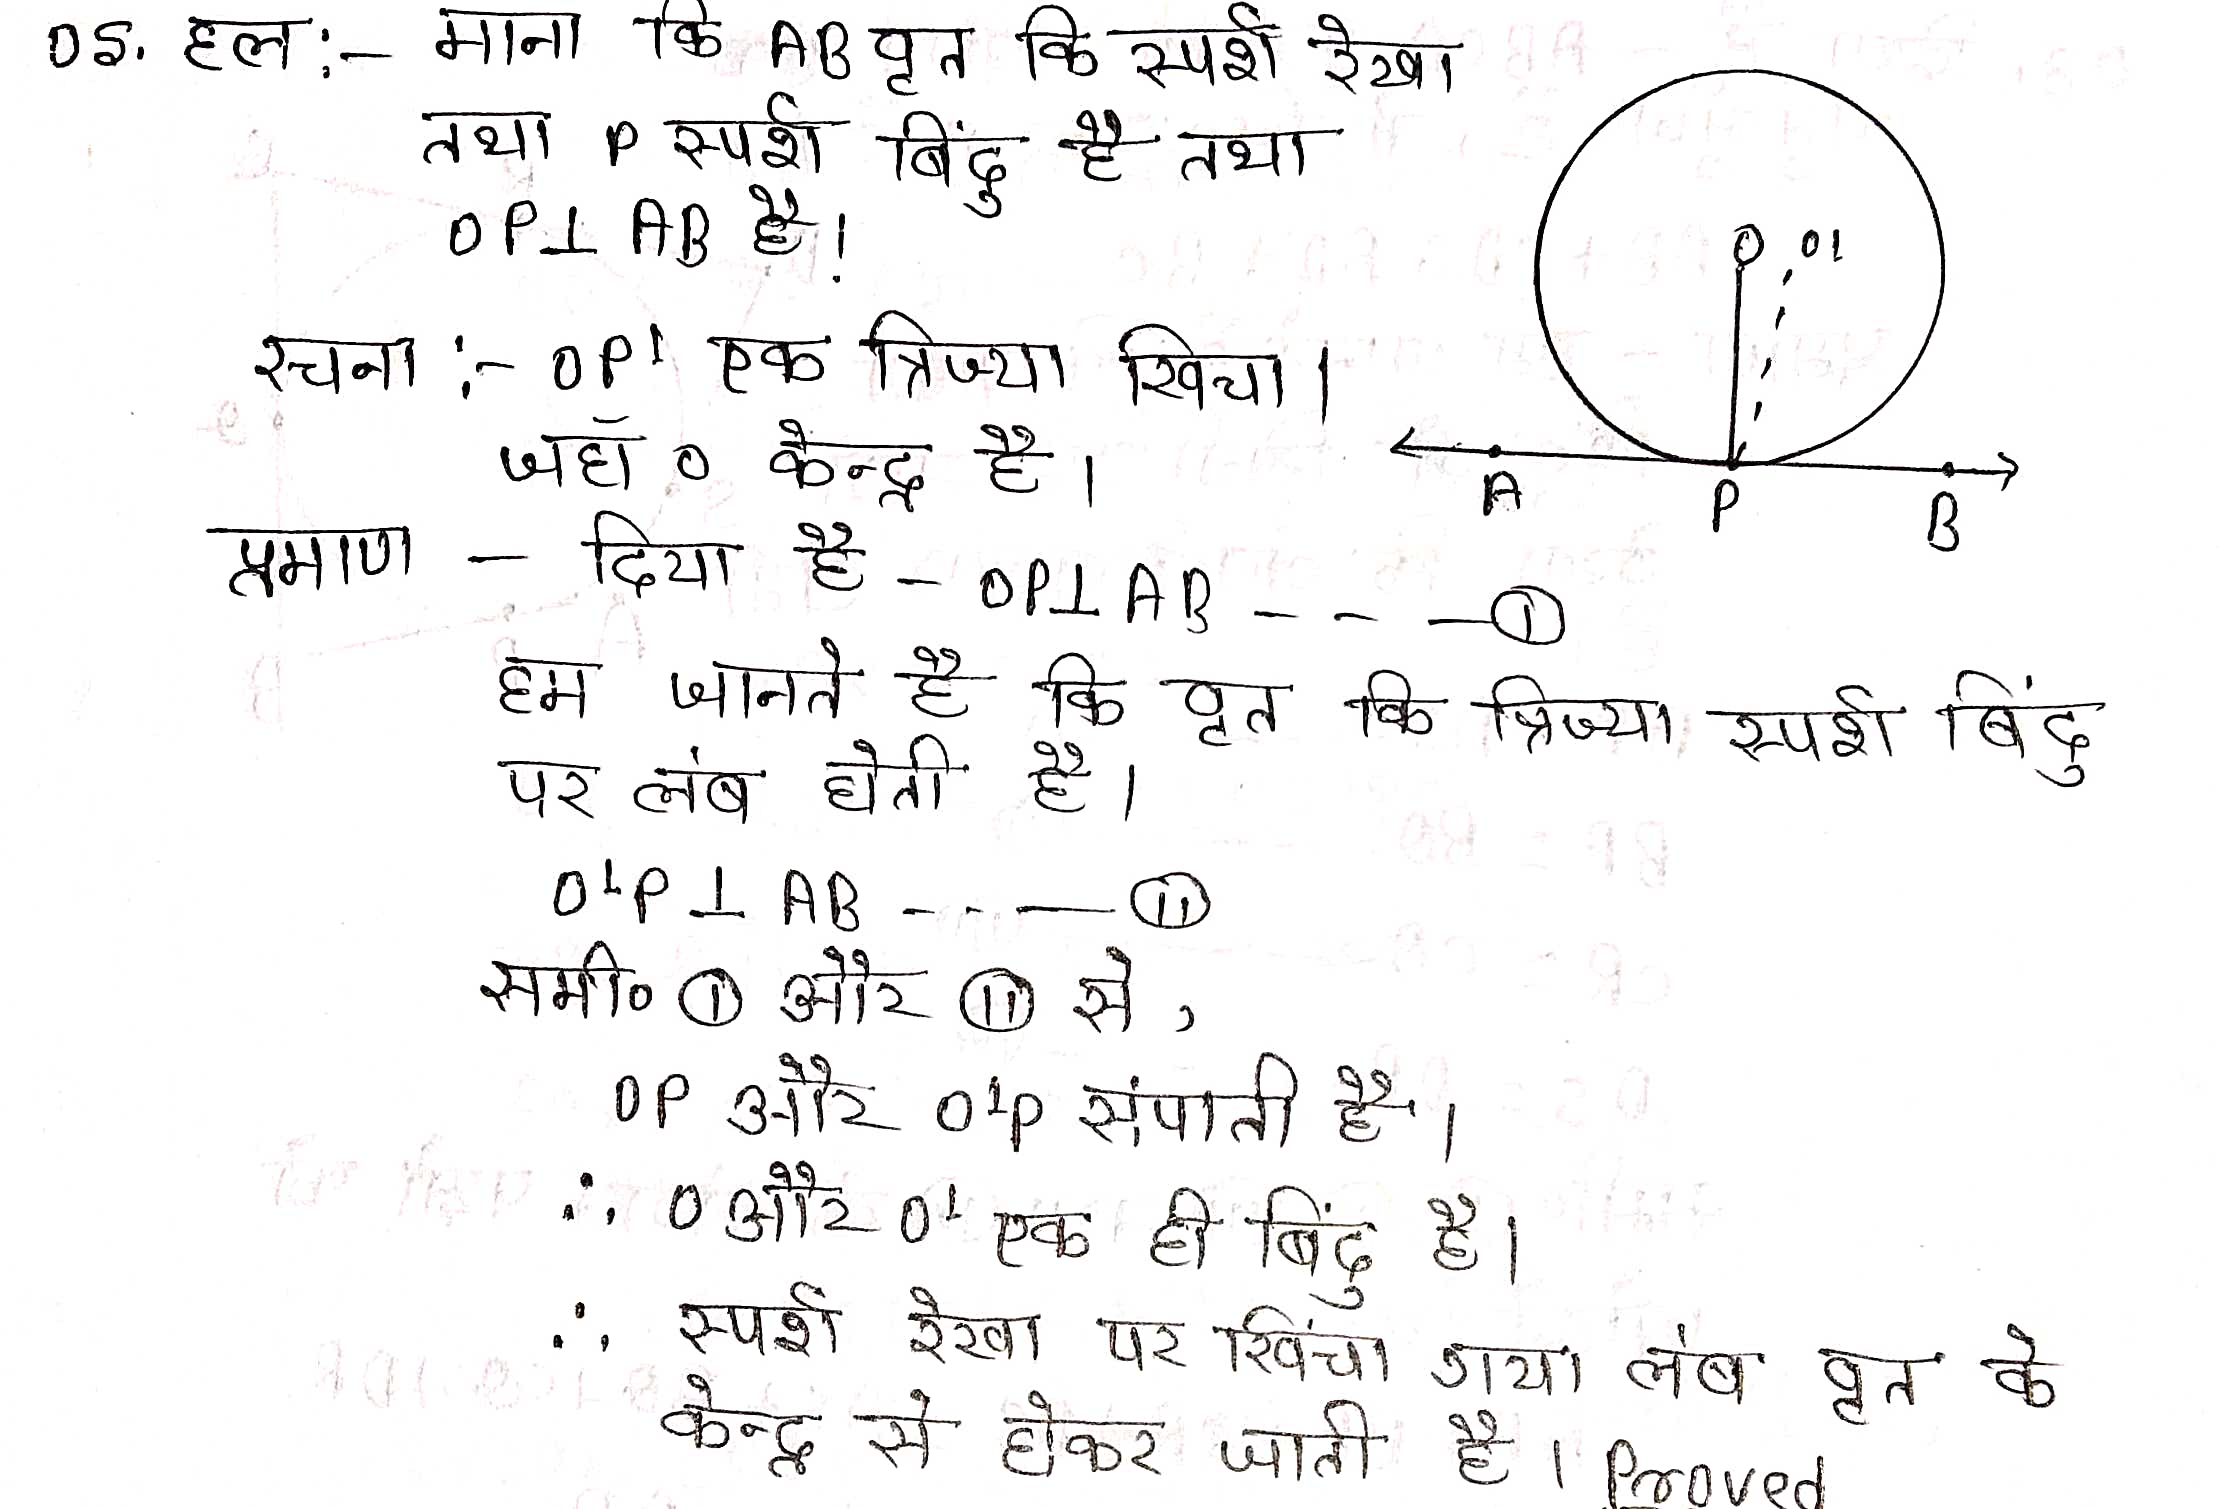 05. हल:- माना कि AB वृत कि स्पर्श रेखा
तथा P स्पर्श बिंदु है तथा
OP⊥ AB है।
O O1
रचना :- OP' एक त्रिज्या खिचा।
जहाँ O केन्द्र है।
A P B
प्रमाण - दिया है - OP⊥AB - - - ①
हम जानते है कि वृत कि त्रिज्या स्पर्श बिंदु
पर लंब होती है।
O'P ⊥ AB - - - ⑪
समी० ① और ⑪ से,
OP और O'P संपाती है।
∴ O और O' एक ही बिंदु है।
∴ स्पर्श रेखा पर खिंचा गया लंब वृत के
केन्द्र से होकर जाती है। Proved